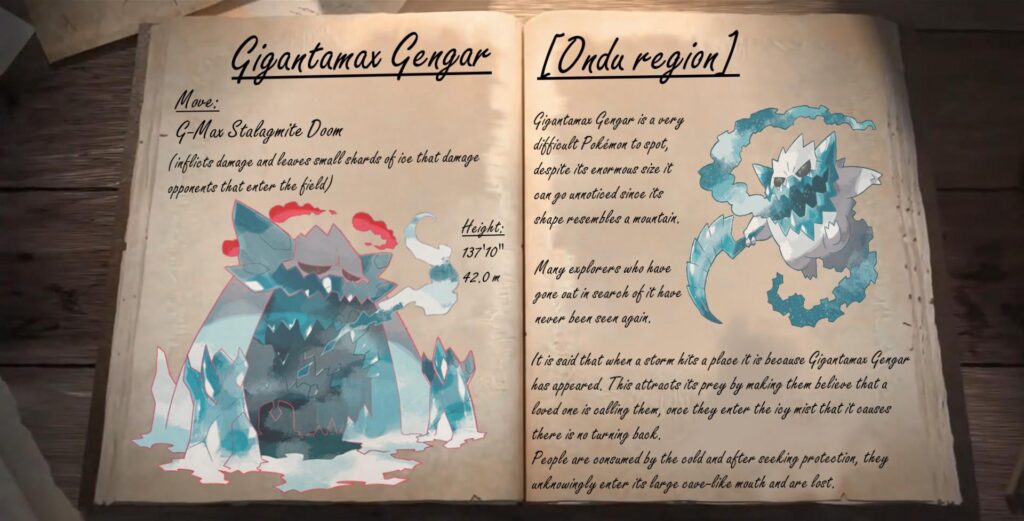 Gigantamax Gengar
Move:
G-Max Stalagmite Doom
(inflicts damage and leaves small shards of ice that damage
opponents that enter the field)
Height:
137'10"
42.0 m
[Ondu region]
Gigantamax Gengar is a very
difficult Pokémon to spot,
despite its enormous size it
can go unnoticed since its
shape resembles a mountain.
Many explorers who have
gone out in search of it have
never been seen again.
It is said that when a storm hits a place it is because Gigantamax Gengar
has appeared. This attracts its prey by making them believe that a
loved one is calling them, once they enter the icy mist that it causes
there is no turning back.
People are consumed by the cold and after seeking protection, they
unknowingly enter its large cave-like mouth and are lost.